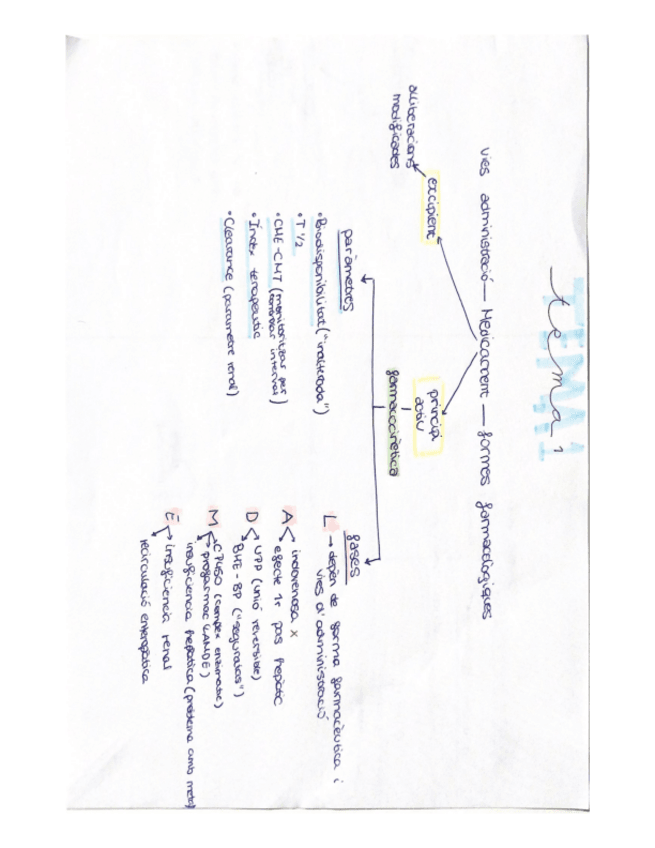 TEMA 1
tema 1
vies administració — Medicament — formes farmacològiques
excipient
alliberacions
modificades
principi
actiu
farmacocinètica
paràmetres
• Biodisponibilitat ("inalterada")
• T 1/2
• CME-CMT (monitoritzar per
interval)
• Índex terapèutic
• Clearance (paràmetre renal)
fases
L → depèn de forma farmacèutica i
vies d'administració
A
intravenosa x
efecte 1r pas hepàtic
D
UPP (unió reversible)
BHE - BP ("seguretats")
M
CP450 (complex enzimàtic)
profàrmac (LANDE)
insuficiència hepàtica (problema amb meta)
E
insuficiència renal
recirculació enterohepàtica